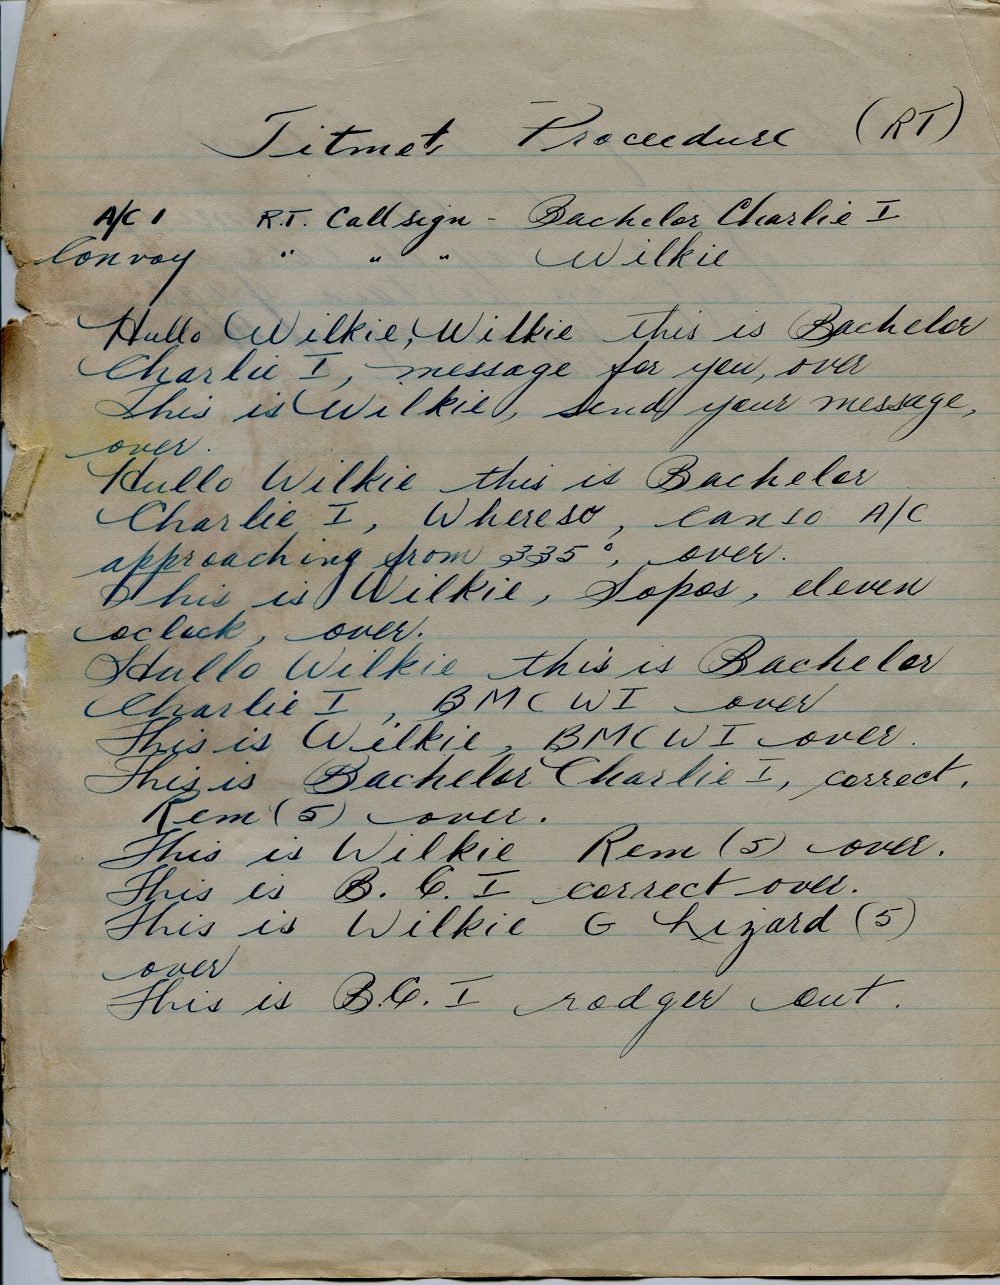 Titmets Proceedure (RT)
A/C 1 R.T. Callsign - Bachelor Charlie I
Convoy " " " Wilkie
Hullo Wilkie, Wilkie this is Bachelor
Charlie I, message for you, over
This is Wilkie, send your message,
over.
Hullo Wilkie this is Bachelor
Charlie I, Whereso, canso A/C
approaching from 335°, over.
This is Wilkie, Sopos, eleven
oclock, over.
Hullo Wilkie this is Bachelor
Charlie I, BMCWI over
This is Wilkie, BMCWI over.
This is Bachelor Charlie I, correct,
Rem (5) over.
This is Wilkie Rem (5) over.
This is B.C. I correct over.
This is Wilkie G Lizard (5)
over
This is B.C. I rodger out.